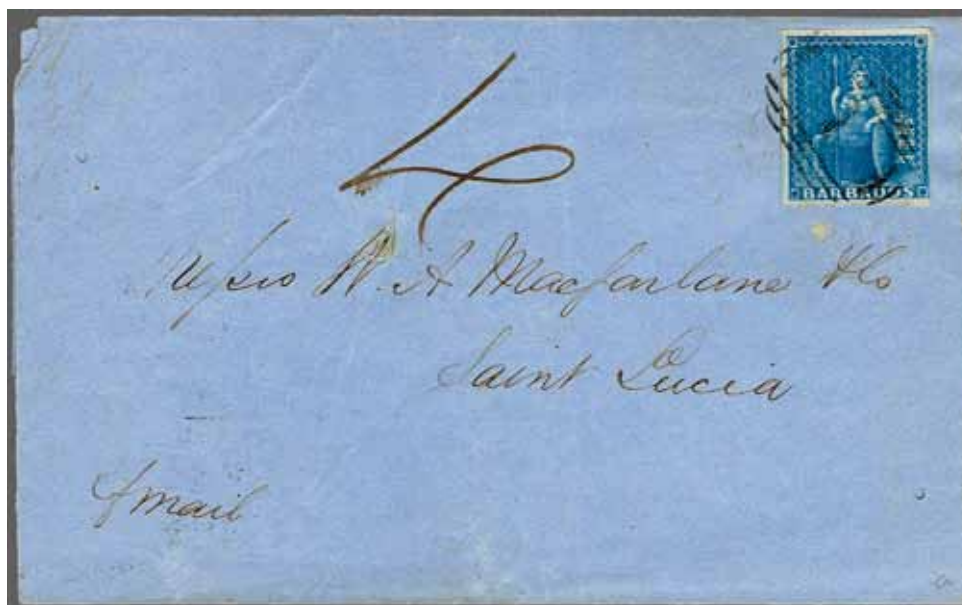 BARBADOS
4
Messrs W. A Macfarlane & Co
Saint Lucia
p mail